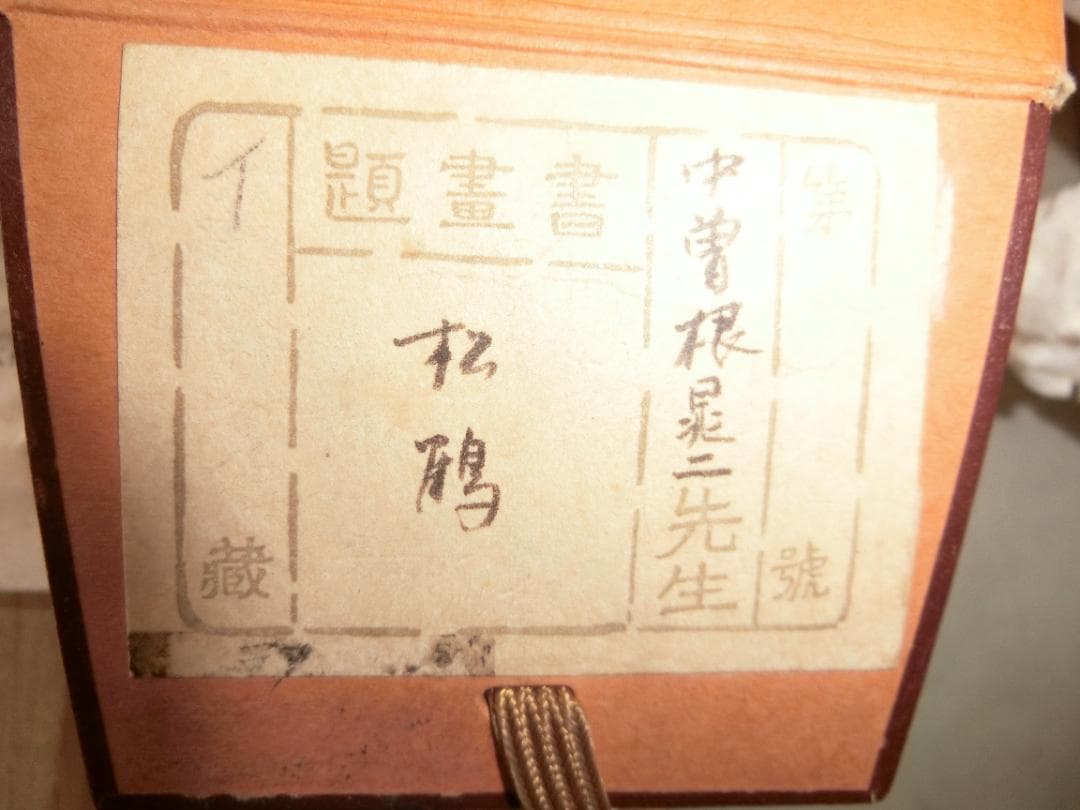 第號
中曾根晁二先生
書畫題
松鴉
イ藏